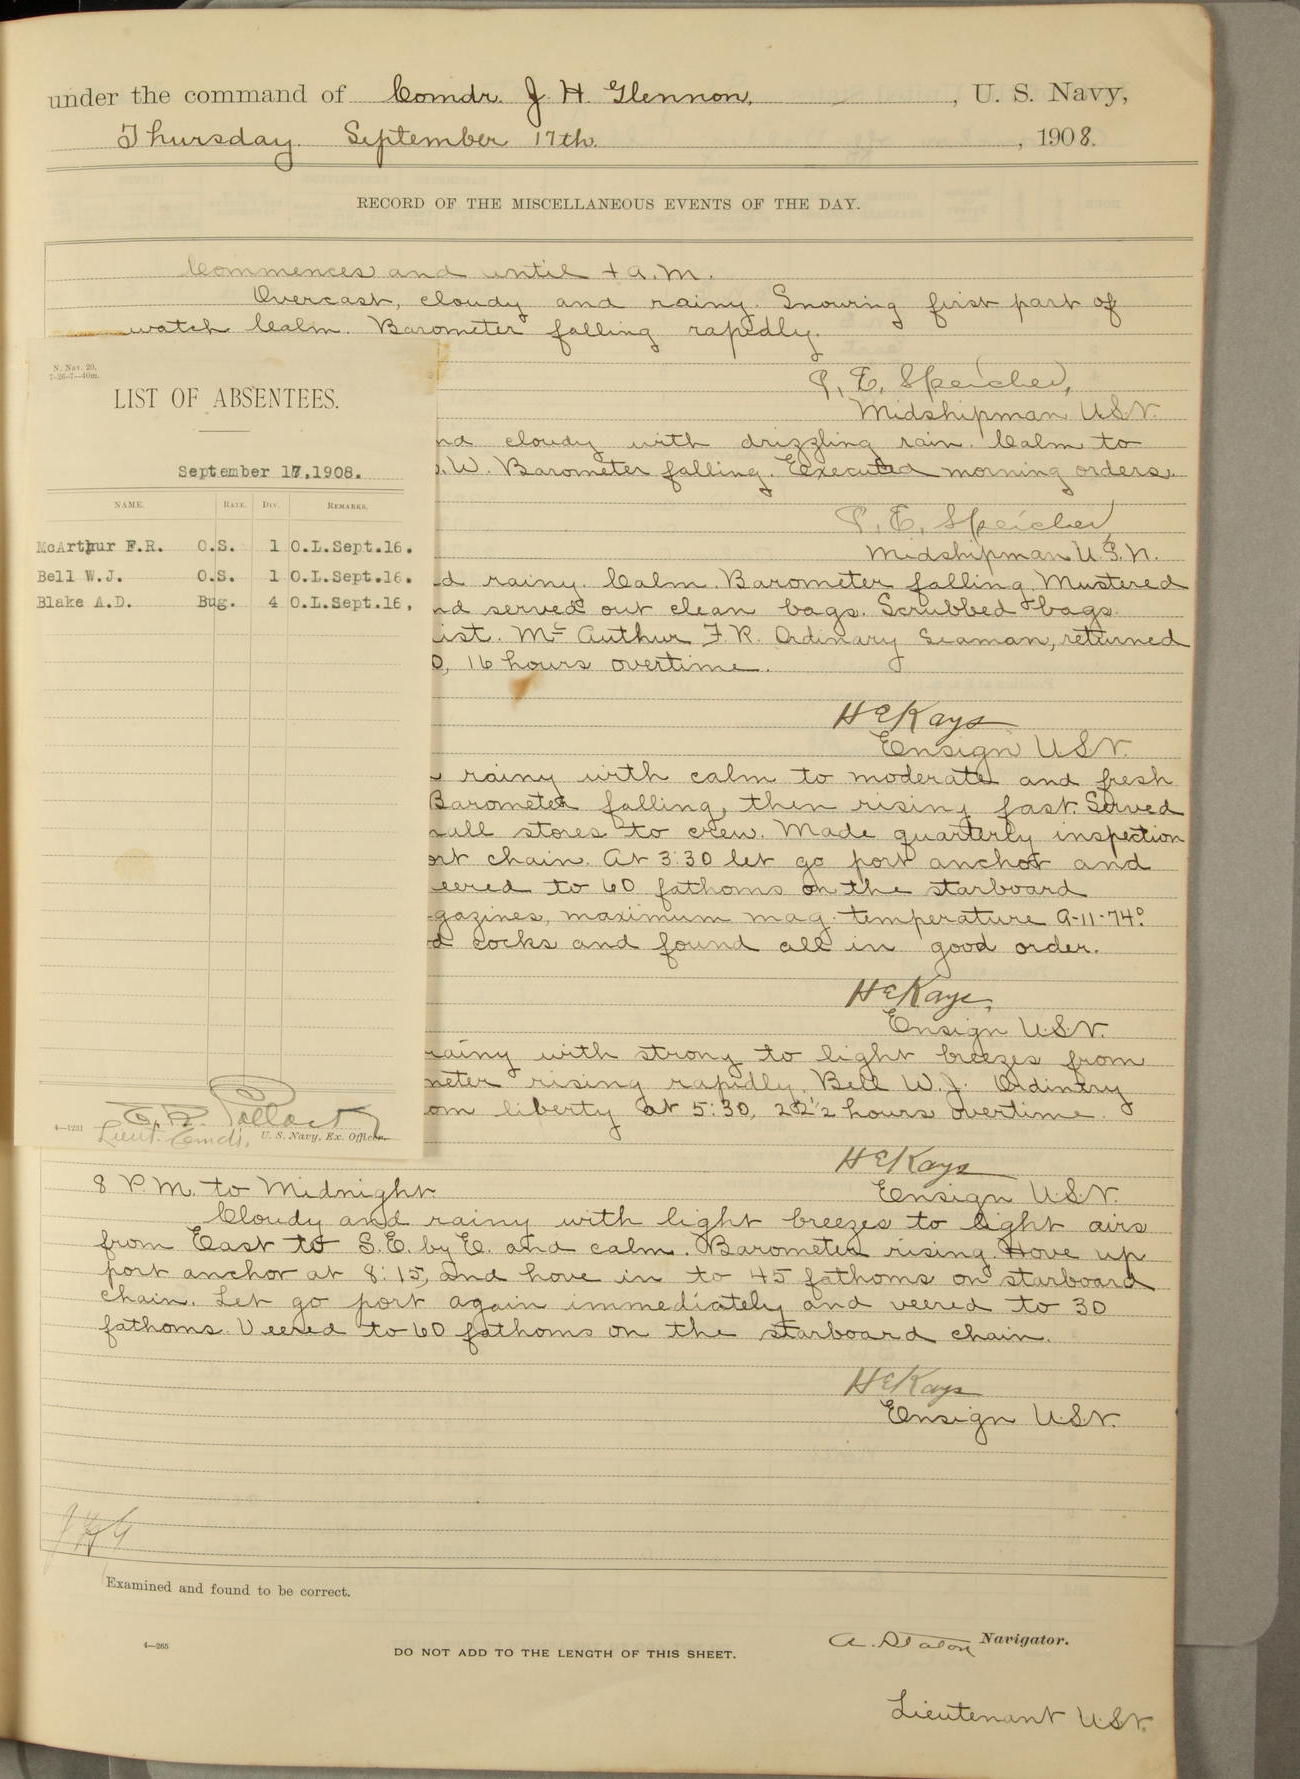 under the command of Comdr. J. H. Glennon, , U. S. Navy,
Thursday. September 17th. , 1908.
RECORD OF THE MISCELLANEOUS EVENTS OF THE DAY.
Commences and until 4 a.m.
Overcast, cloudy and rainy. Snowing first part of
watch Calm. Barometer falling rapidly.
P. E. Speicher,
Midshipman U.S.N.
nd cloudy with drizzling rain. Calm to
.W. Barometer falling. Executed morning orders.
P. E. Speicher,
Midshipman U.S.N.
d rainy. Calm. Barometer falling. Mustered
nd served out clean bags. Scrubbed bags.
ist. Mc Authur F.R. Ordinary Seaman, returned
0, 16 hours overtime.
H E Kays
Ensign U.S.N.
rainy with calm to moderate and fresh
Barometer falling, then rising fast. Served
all stores to crew. Made quarterly inspection
ort chain. At 3:30 let go port anchor and
eered to 60 fathoms on the starboard
gazines, maximum mag. temperature A-11-74°
d cocks and found all in good order.
H E Kays,
Ensign U.S.N.
rainy with strong to light breezes from
meter rising rapidly. Bell W.J. Ordinry
om liberty at 5:30, 22½ hours overtime.
H E Kays
8 P.M. to Midnight.
Ensign U.S.N.
Cloudy and rainy with light breezes to light airs
from East to S.E. by E. and calm. Barometer rising. Hove up
port anchor at 8:15, and hove in to 45 fathoms on starboard
chain. Let go port again immediately and veered to 30
fathoms. Veered to 60 fathoms on the starboard chain.
H E Kays
Ensign U.S.N.
J H G
Examined and found to be correct.
4—265
DO NOT ADD TO THE LENGTH OF THIS SHEET.
A. Staton Navigator.
Lieutenant U.S.N.
N. Nav. 20.
7-26-7—40m.
LIST OF ABSENTEES.
September 17,1908.
NAME. RATE. DIV. REMARKS.
McArthur F.R. O.S. 1 O.L.Sept.16.
Bell W.J. O.S. 1 O.L.Sept.16.
Blake A.D. Bug. 4 O.L.Sept.16,
E. R. Pollock
4—1231 Lieut. Comdr., U. S. Navy, Ex. Officer.